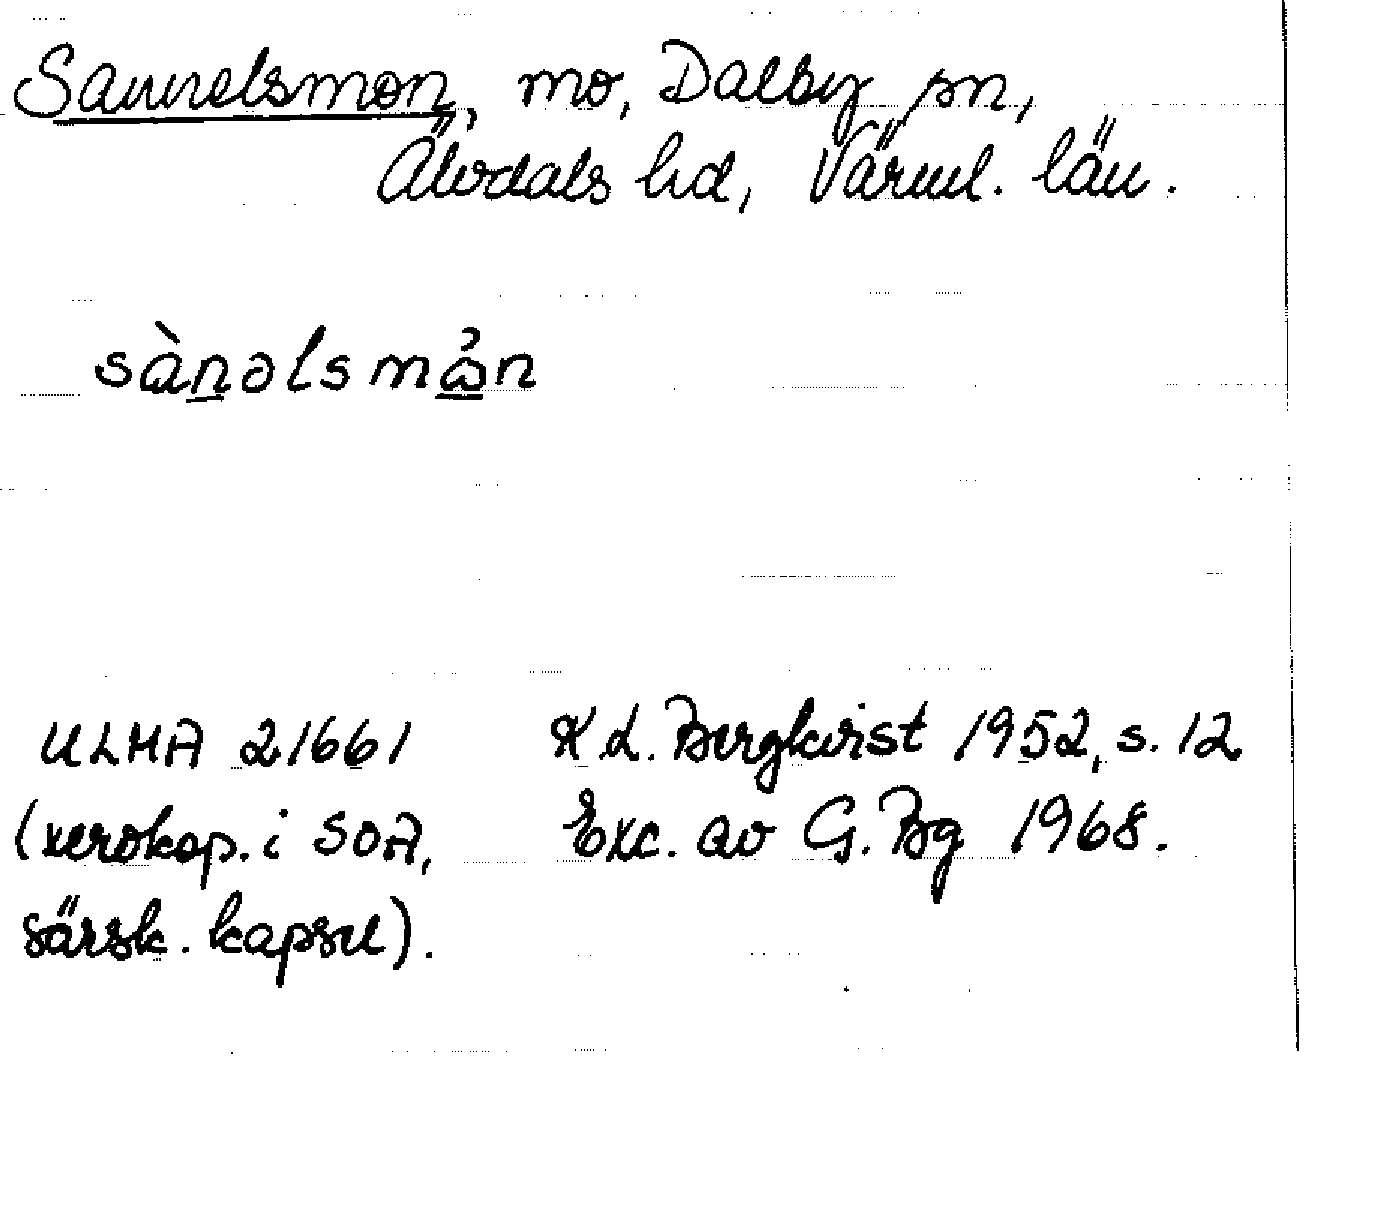 Sannelsmon, mo, Dalby sn,
Älvdals hd, Värml. län.
sàn̲əlsmå̲n
ULMA 21661 K.L. Bergkvist 1952, s. 12
(xerokop. i SOA, Exc. av G. Bg 1968.
särsk. kapsel).